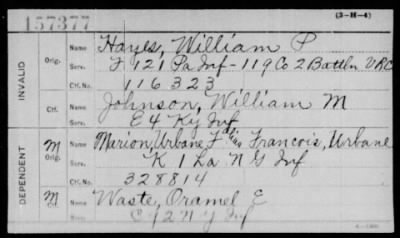 157377
(3-H-4)
INVALID
Orig.
Name Hayes, William P
Serv. F 121 Pa Inf - 119 Co 2 Battln VRC
Ctf. No. 116323
Ctf.
Name Johnson, William M
Serv. E 4 Ky Inf
DEPENDENT
M
Orig.
Name Marion, Urbane F alias Francois, Urbane
Serv. K 1 La N G Inf
Ctf. No. 328814
M
Ctf.
Name Waste, Oramel E
Serv. C 92 N Y Inf